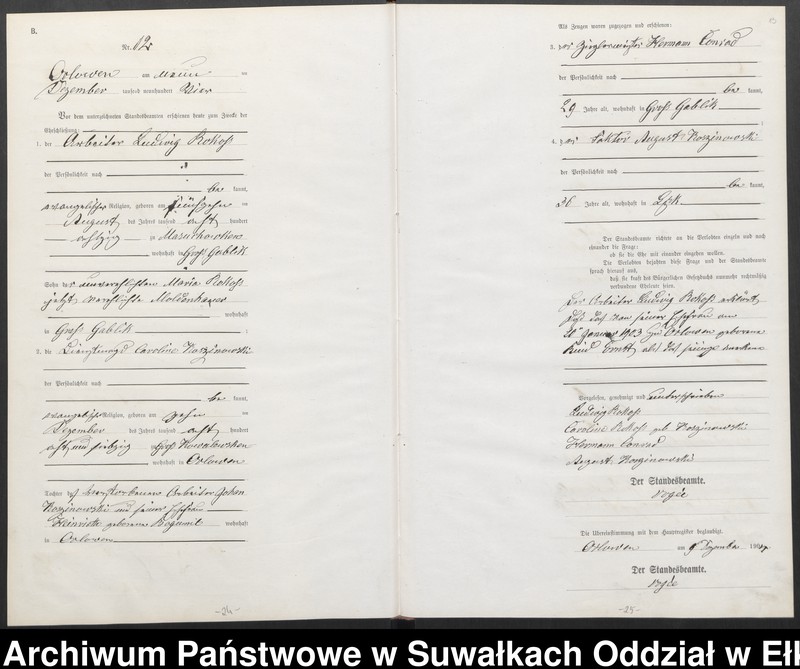 B.
Nr. 12
Orlowen am neun ten
Dezember tausend neunhundert Vier
Vor dem unterzeichneten Standesbeamten erschienen heute zum Zwecke der
Eheschließung:
1. der Arbeiter Ludwig Rokoß
der Persönlichkeit nach
be kannt,
evangelischer Religion, geboren am fünfzehn ten
August des Jahres tausend acht hundert
achtzig zu
wohnhaft in Groß Gablik
Sohn der unverehelichten Maria Rokoß
jetzt verehelichte
wohnhaft
in Groß Gablik
2. die Dienstmagd Caroline Koszinowski
der Persönlichkeit nach
be kannt,
evangelischer Religion, geboren am zehn ten
Dezember des Jahres tausend acht hundert
acht und siebzig
wohnhaft in Orlowen
Tochter des verstorbenen Arbeiter Johan
Koszinowski und seiner Ehefrau
Heinriette geborene Bogumil wohnhaft
in Orlowen
-24-
13
Als Zeugen waren zugezogen und erschienen:
3. der Zieglermeister Hermann Conrad
der Persönlichkeit nach
be kannt,
29 Jahre alt, wohnhaft in Groß Gablik
4. der Faktor August Koszinowski
der Persönlichkeit nach
be kannt,
36 Jahre alt, wohnhaft in Lyk
Der Standesbeamte richtete an die Verlobten einzeln und nach
einander die Frage:
ob sie die Ehe mit einander eingehen wollen.
Die Verlobten bejahten diese Frage und der Standesbeamte
sprach hierauf aus,
daß sie kraft des Bürgerlichen Gesetzbuchs nunmehr rechtmäßig
verbundene Eheleute seien.
Der Arbeiter Ludwig Rokoß erklärt,
daß das von seiner Ehefrau am
Januar 1903 zu Orlowen geborene
Kind Ernst als das seinige anerkenne
Vorgelesen, genehmigt und unterschrieben
Ludwig Rokoß
Caroline Rokoß geb Koszinowski
Hermann Conrad
August Koszinowski
Der Standesbeamte.
Die Übereinstimmung mit dem Hauptregister beglaubigt.
Orlowen am 9 Dezember 1904
Der Standesbeamte.
-25-
Archiwum Państwowe w Suwałkach Oddział w Eł